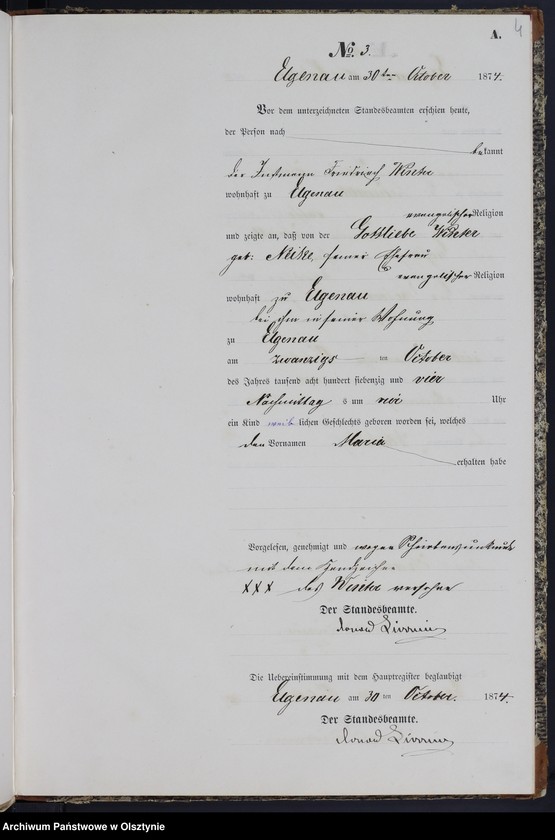 4
A.
No. 3.
Elgenau am 30ten October 1874.
Vor dem unterzeichneten Standesbeamten erschien heute,
der Person nach
bekannt
der Instmann Friedrich
wohnhaft zu Elgenau
evangelischer Religion
und zeigte an, daß von der Gottliebe
geb: seiner Ehefrau
evangelischer Religion
wohnhaft zu Elgenau
bei ihm in seiner Wohnung
zu Elgenau
am zwanzigs ten October
des Jahres tausend acht hundert siebenzig und vier
Nachmittag s um Uhr
ein Kind weib lichen Geschlechts geboren worden sei, welches
den Vornamen Maria
erhalten habe
Vorgelesen, genehmigt und wegen
mit dem Handzeichen
XXX des versehen
Der Standesbeamte.
Die Uebereinstimmung mit dem Hauptregister beglaubigt
Elgenau am 30 ten October. 1874.
Der Standesbeamte.
Archiwum Państwowe w Olsztynie